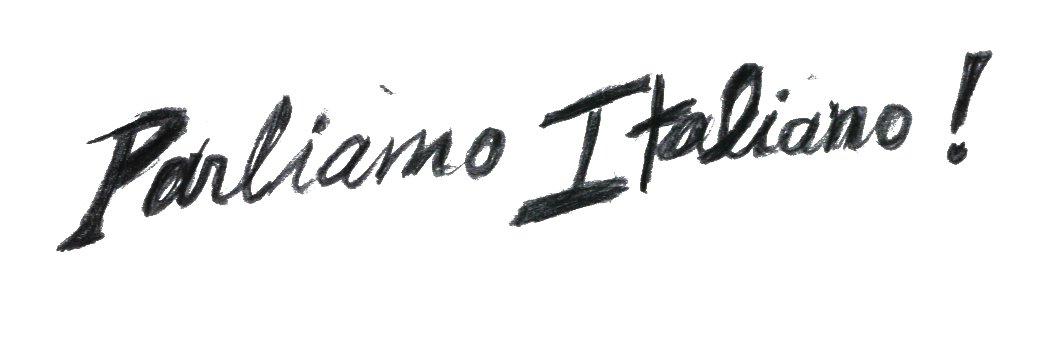 Parliamo Italiano!